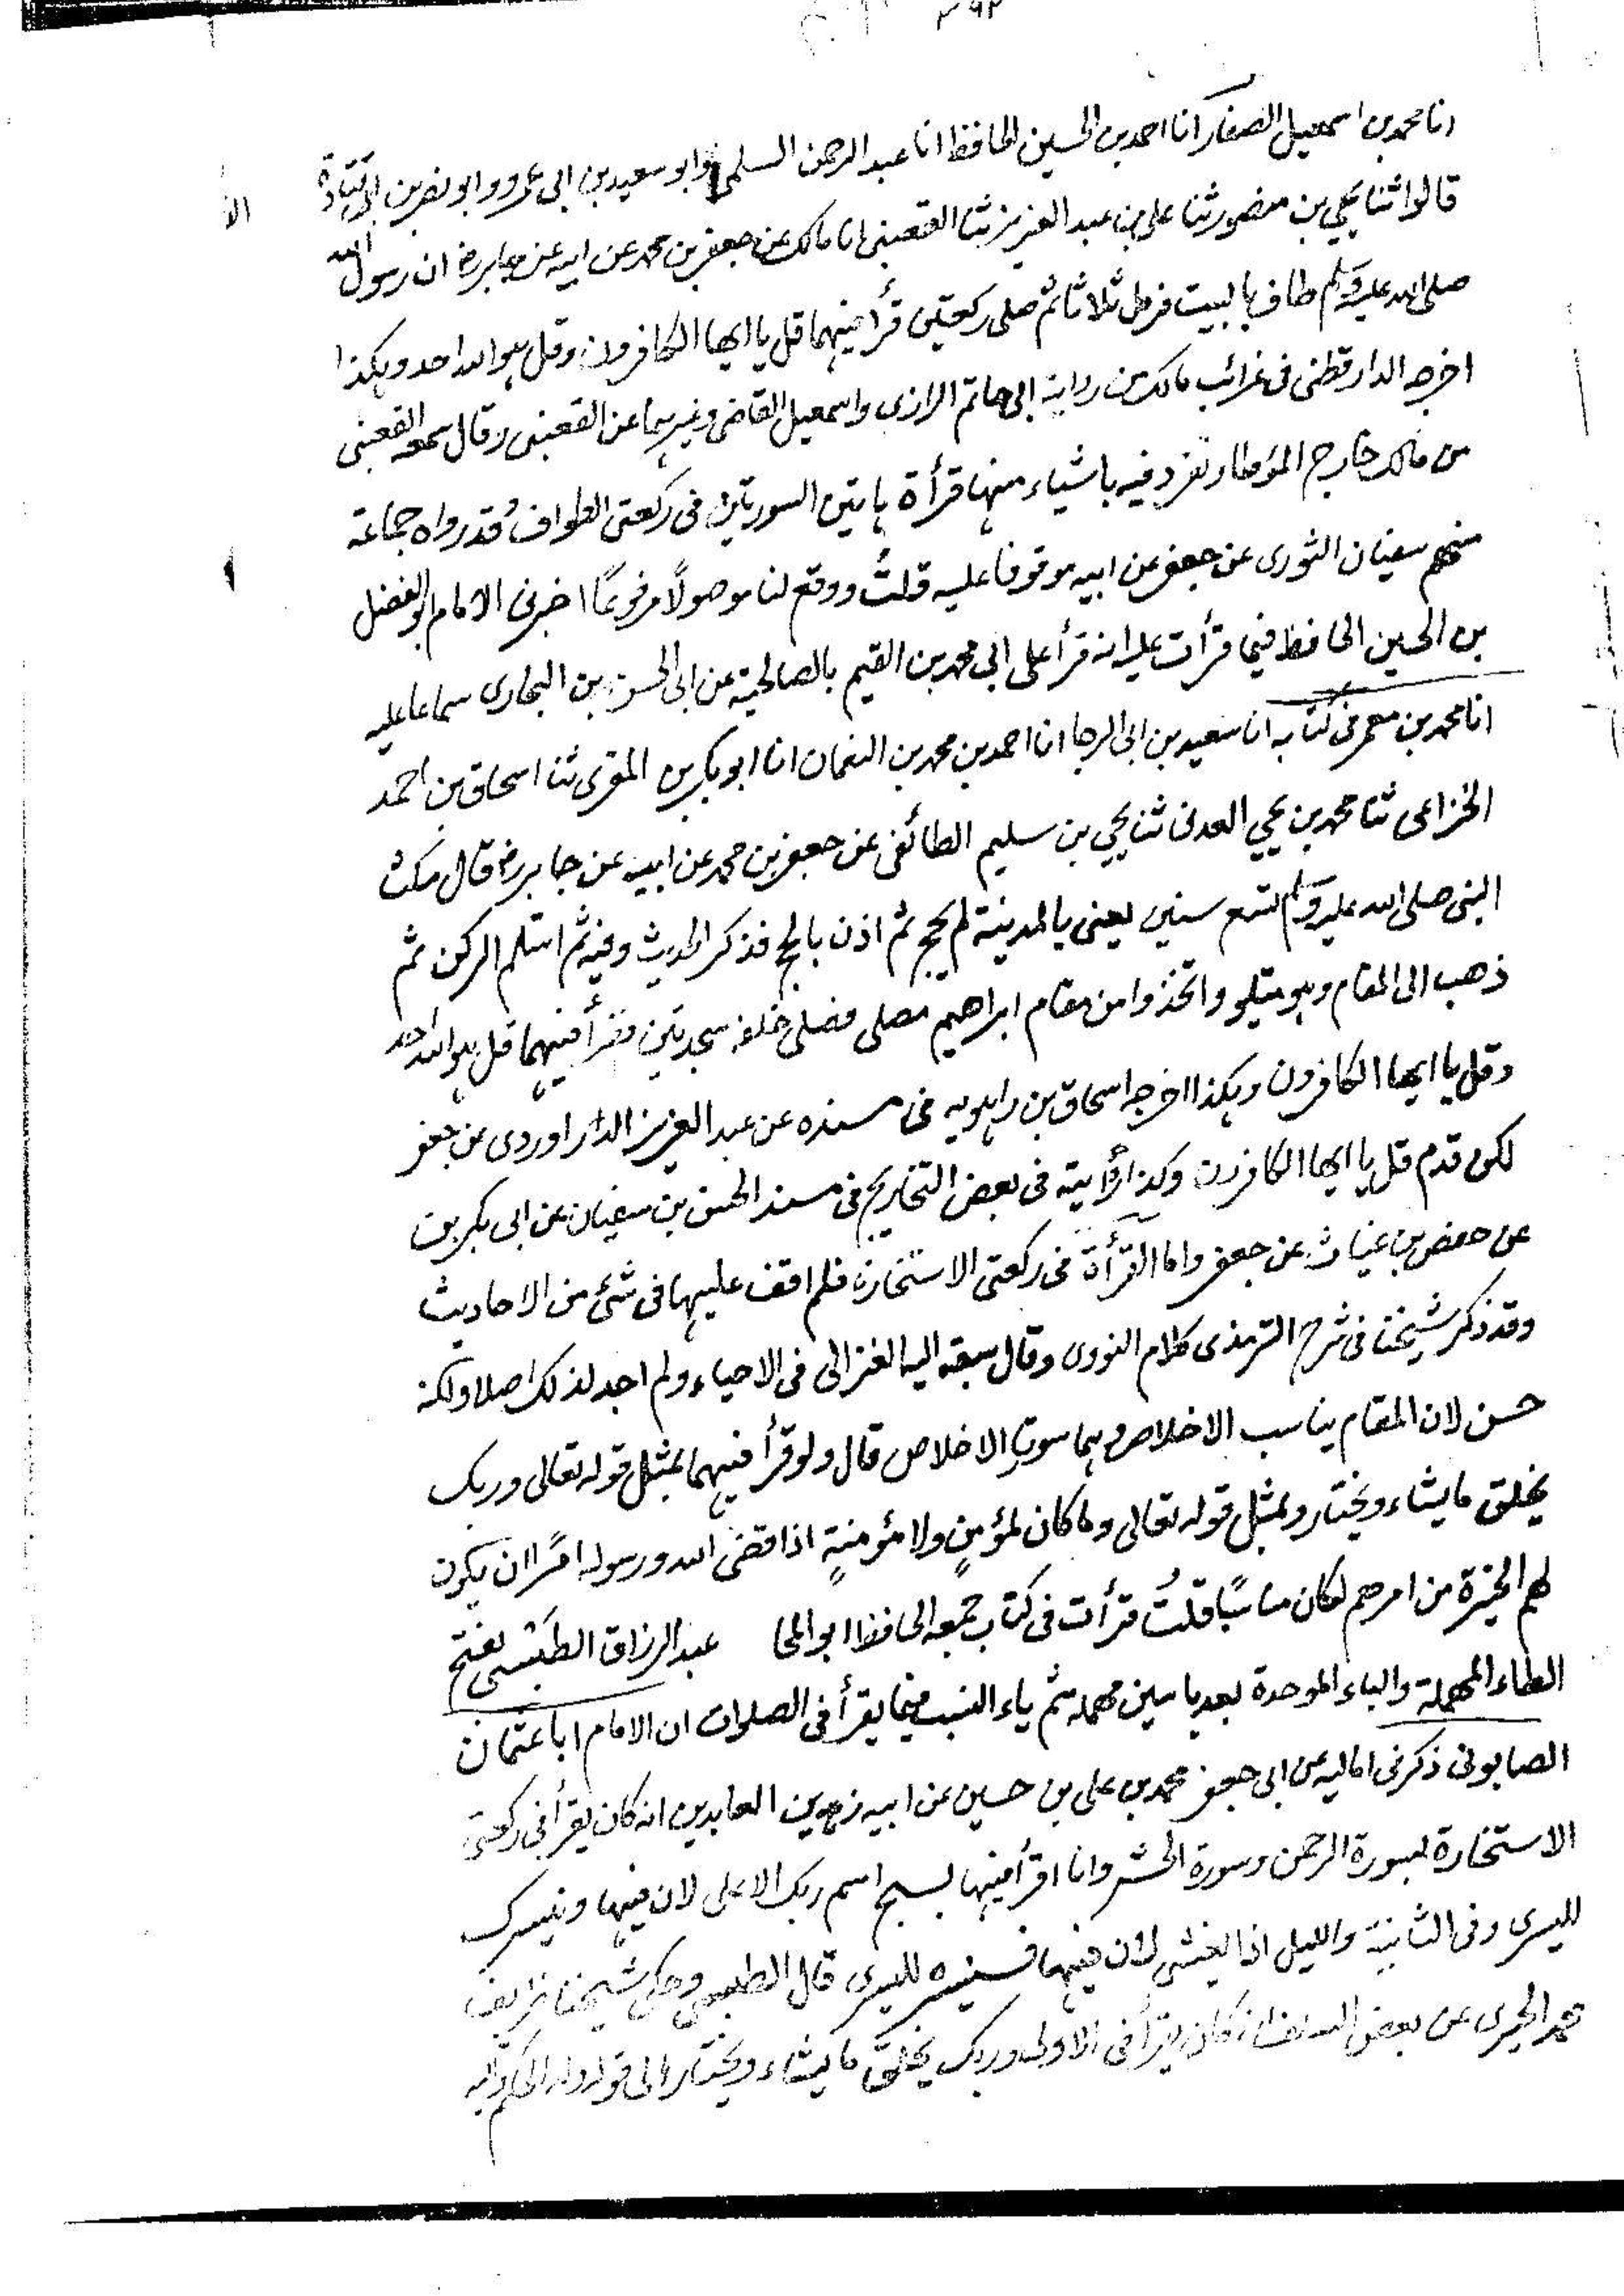 ٣٩٢
انا محمد بن اسمعيل الصفار انا احمد بن الحسين الحافظ انا عبد الرحمن السلمى وابو سعيد بن ابى عمرو وابو نصر بن ابى قتادة
قالوا ثنا يحيى بن منصور ثنا على بن عبد العزيز ثنا القعنبى انا مالك عن جعفر بن محمد عن ابيه عن جابر رض ان رسول الله
صلى الله عليه وسلم طاف بالبيت فرمل ثلاثا ثم صلى ركعتين قرأ فيهما قل يا ايها الكافرون وقل هو الله احد وهكذا
اخرجه الدارقطنى فى غرائب مالك من رواية ابى حاتم الرازى واسمعيل القاضى وغيرهما عن القعنبى وقال سمعه القعنبى
من مالك خارج المؤطا وتفرد فيه باشياء منها قرأة هاتين السورتين فى ركعتى الطواف وقد رواه جماعة
منهم سفيان الثورى عن جعفر عن ابيه موقوفا عليه قلت ووقع لنا موصولاً مرفوعًا اخبرنى الامام ابو الفضل
بن الحسين الحافظ فيما قرأت عليه انه قرأ على ابى محمد بن القيم بالصالحية عن ابى الحسن بن البخارى سماعا عليه
انا محمد بن معمر فى كتابه انا سعيد بن ابى الرجا انا احمد بن محمد بن النعمان انا ابو بكر بن المقرى ثنا اسحاق بن احمد
الخزاعى ثنا محمد بن يحيى العدنى ثنا يحيى بن سليم الطائفى عن جعفر بن محمد عن ابيه عن جابر رض قال مكث
النبى صلى الله عليه وسلم تسع سنين يعنى بالمدينة لم يحج ثم اذن بالحج فذكر الحديث وفيه ثم استلم الركن ثم
ذهب الى المقام وهو يتلو واتخذوا من مقام ابراهيم مصلى فصلى خلفه سجدتين فقرأ فيهما قل هو الله احد
وقل يا ايها الكافرون وهكذا اخرجه اسحاق بن راهويه فى مسنده عن عبد العزيز الدراوردى عن جعفر
لكن قدم قل يا ايها الكافرون وكذا رأيته فى بعض التخاريج فى مسند الحسن بن سفيان عن ابى بكر بن
عن حفص بن غياث عن جعفر واما القرأة فى ركعتى الاستخارة فلم اقف عليها فى شئ من الاحاديث
وقد ذكر شيخنا فى شرح الترمذى كلام النووى وقال سبقه اليه الغزالى فى الاحياء ولم اجد لذلك اصلا ولكنه
حسن لان المقام يناسب الاخلاص وهما سورتا الاخلاص قال ولو قرأ فيهما بمثل قوله تعالى وربك
يخلق ما يشاء ويختار وبمثل قوله تعالى وما كان لمؤمنٍ ولا مؤمنةٍ اذا قضى الله ورسوله امرًا ان يكون
لهم الخيرة من امرهم لكان مناسبًا قلتُ قرأت فى كتاب جمعه الحافظ ابو المحا عبد الرزاق الطبسى بفتح
الطاء المهملة والباء الموحدة بعدها سين مهملة ثم ياء النسب فيما يقرأ فى الصلوات ان الامام ابا عثمان
الصابونى ذكر فى اماليه عن ابى جعفر محمد بن على بن حسين عن ابيه زين العابدين انه كان يقرأ فى ركعتى
الاستخارة بسورة الرحمن وسورة الحشر وانا اقرأ فيها بسبح اسم ربك الاعلى لان فيها ونيسرك
لليسرى وفى الثانية والليل اذا يغشى لان فيها فسنيسره لليسرى قال الطبسى وحكى شيخنا
محمد الحيرى عن بعض السلف انه كان يقرأ فى الاولى وربك يخلق ما يشاء ويختار الى قوله وله الحكم واليه